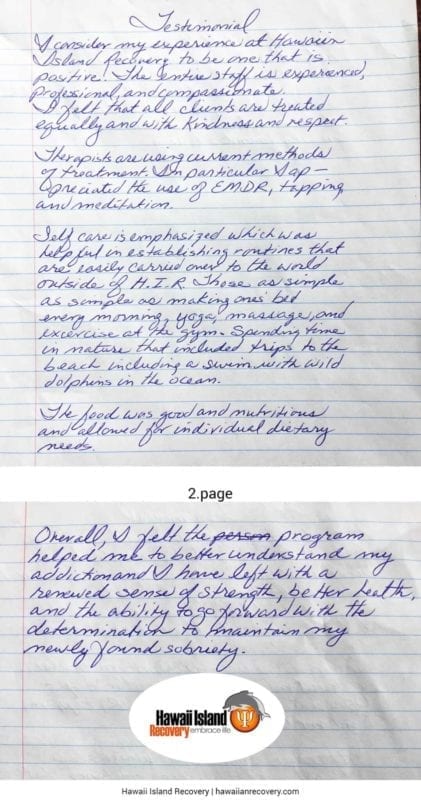 Testimonial
I consider my experience at Hawaiin
Island Recovery to be one that is
positive. The entire staff is experienced,
professional, and compassionate.
I felt that all clients are treated
equally and with kindness and respect.
Therapists are using current methods
of treatment. In particular I ap-
preciated the use of EMDR, tapping,
and meditation.
Self care is emphasized which was
helpful in establishing routines that
are easily carried over to the world
outside of H.I.R. Those as simple
as simple as making ones' bed
every morning, yoga, massage, and
excercise at the gym. Spending time
in nature that included trips to the
beach including a swim with wild
dolphins in the ocean.
The food was good and nutritious
and allowed for individual dietary
needs.
2.page
Overall, I felt the person program
helped me to better understand my
addiction and I have left with a
renewed sense of strength, better health,
and the ability to go forward with the
determination to maintain my
newly found sobriety.
Hawaii Island
Recovery embrace life
Hawaii Island Recovery | hawaiianrecovery.com